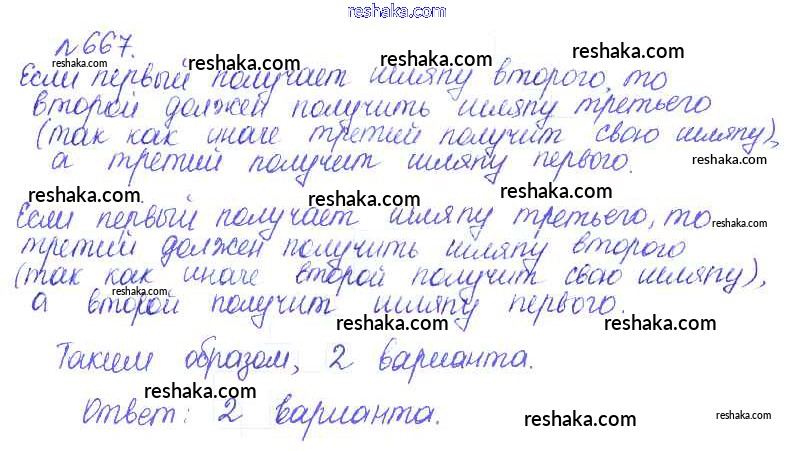 reshaka.com
№667. reshaka.com
reshaka.com reshaka.com
Если первый получает шляпу второго, то
второй должен получить шляпу третьего
(так как иначе третий получит свою шляпу),
а третий получит шляпу первого. reshaka.com
reshaka.com reshaka.com reshaka.com
Если первый получает шляпу третьего, то reshaka.com
третий должен получить шляпу второго
(так как иначе второй получит свою шляпу),
reshaka.com
а второй получит шляпу первого.
reshaka.com reshaka.com
Таким образом, 2 варианта.
reshaka.com
Ответ: 2 варианта. reshaka.com reshaka.com